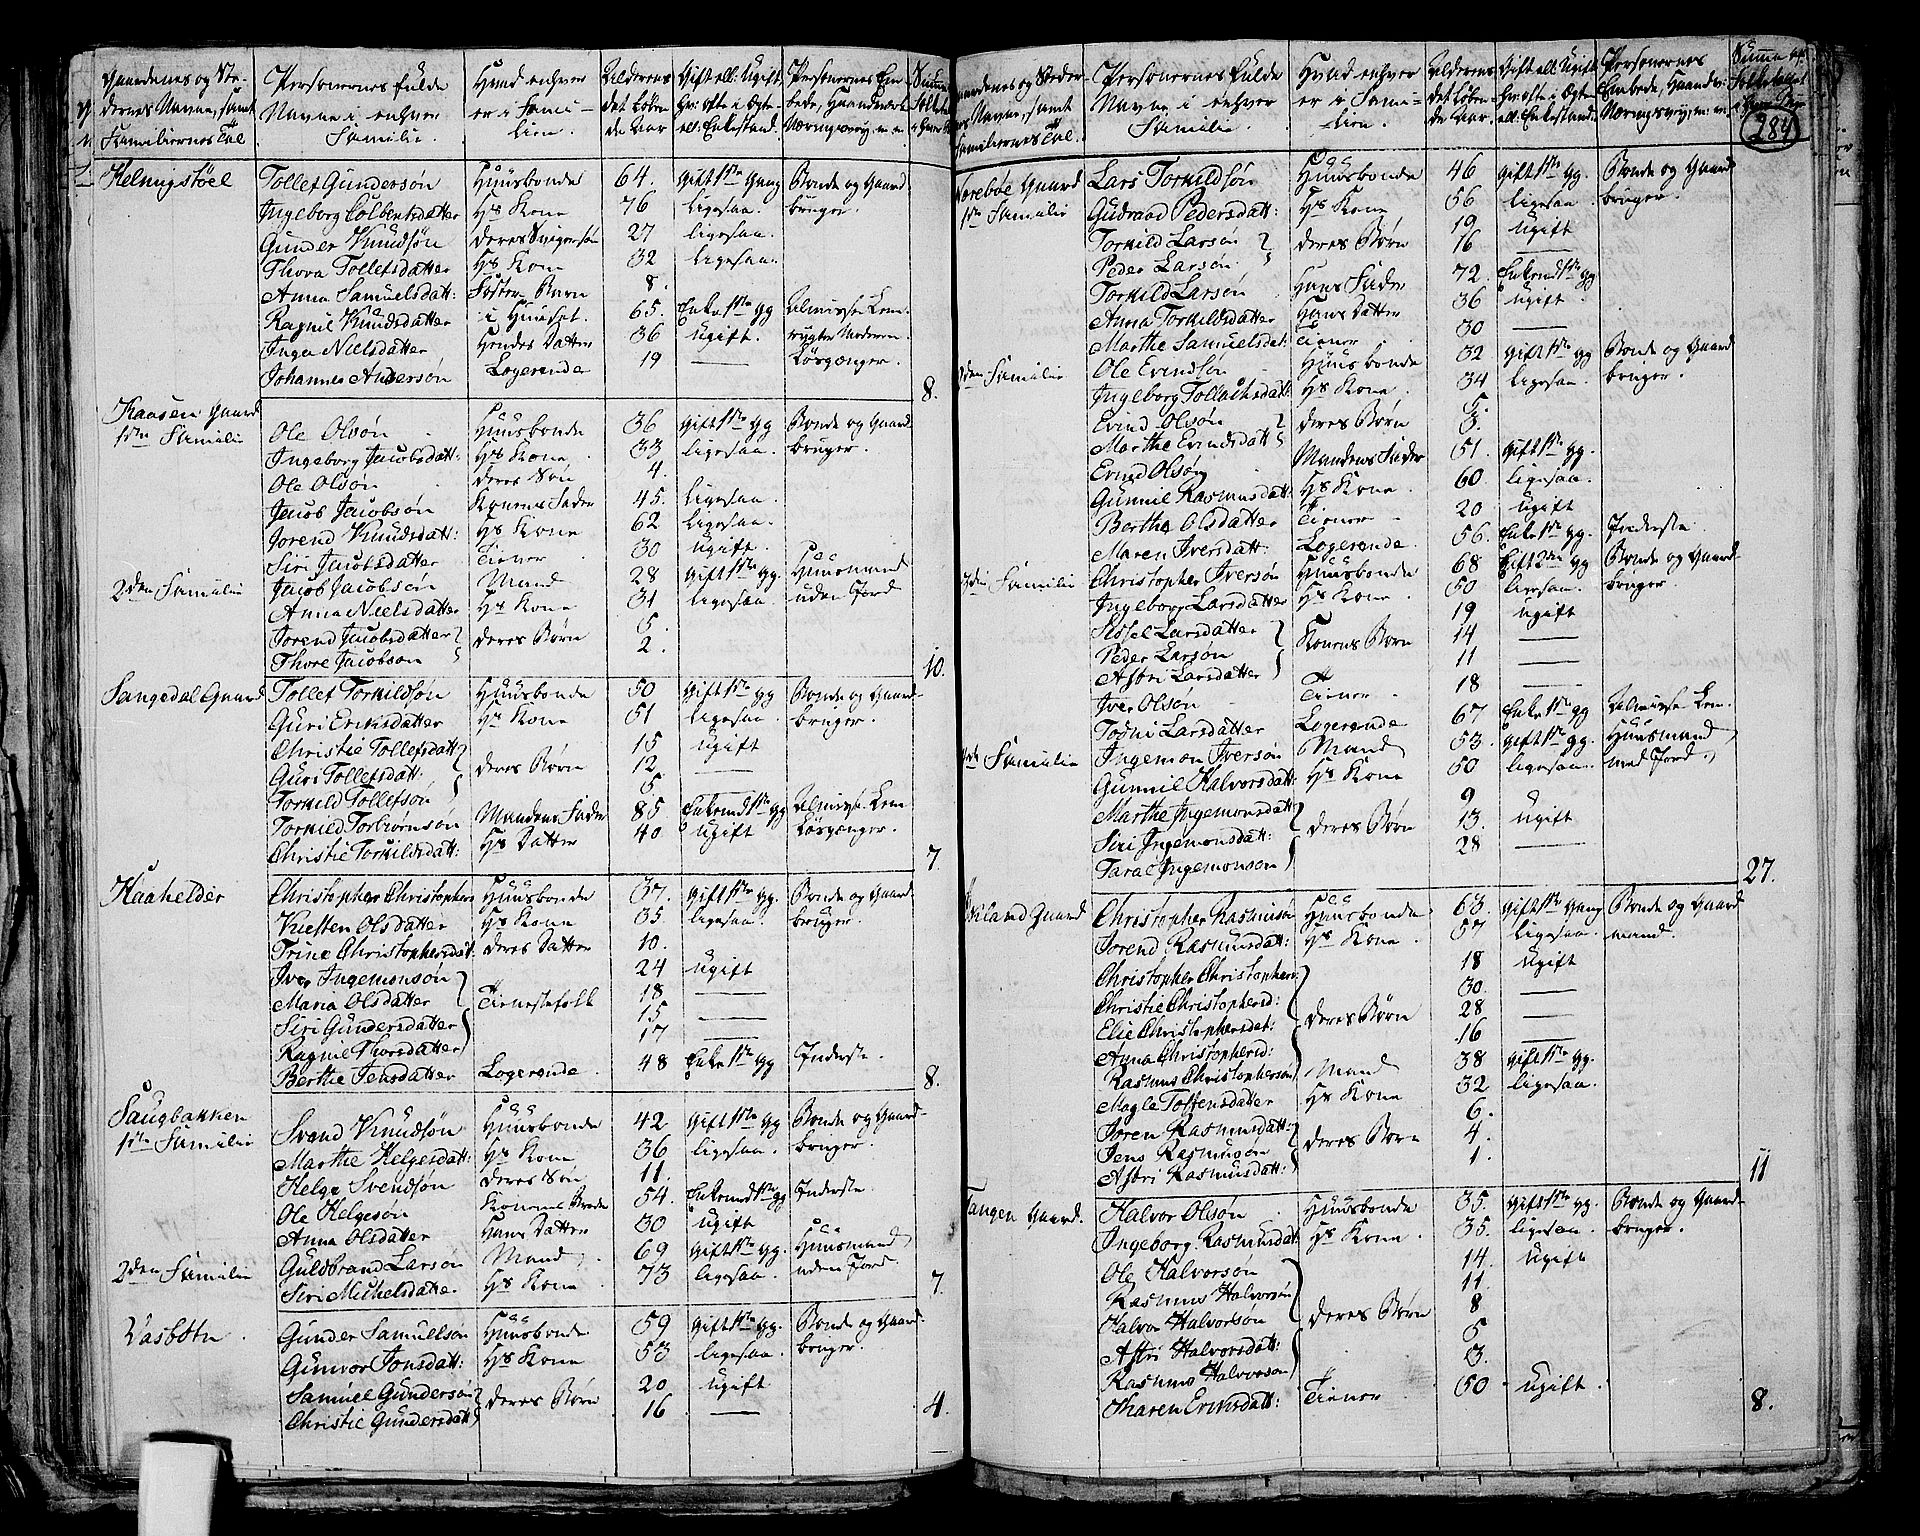 Gaardenes og Ste-
dernes Navne, samt
Familiernes Tal
Personernes fulde
Navne i enhver
Familie.
Hvad enhver
er i Fami-
lien.
Alderens
det løben-
de Aar.
Gift ell: Ugift,
hv: ofte i Ægte-
ell: Enkestand.
Personernes Em-
bede, Haandværk
Næringsvej m: m:
Helmigstöel
Tollef Gundersøn Huusbonde 64. Gift 1ste Gang Bonde og Gaard-
Ingeborg Colbentsdatter Hs Kone 76 ligesaa. bruger.
Gunder Knudsøn deres Svigersøn 27 ligesaa.
Thora Tollefsdatter Hs Kone 32 ligesaa.
Anna Samuelsdatt: Foster Barn 8.
Ragnil Knudsdatter i Huuset. 65. Enke 1ste gg Almisse Lem
Inga Nielsdatter Hendes Datter 36 ugift.
Johannes Andersøn Logerende 19 — Løsgænger.
8.
Kaasen Gaard
1ste Familie
Ole Olsøn Huusbonde 36 Gift 1ste gg Bonde og Gaard-
Ingeborg Jacobsdatt: Hs Kone 33 ligesaa. bruger.
Ole Olsøn deres Søn 4.
Jacob Jacobsøn Konens Fader 45. ligesaa.
Jorend Knudsdatt: Hs Kone 62 ligesaa.
Siri Jacobsdatter Tiener. 30 ugift.
2den Familie Jacob Jacobsøn Mand 28 Gift 1ste gg. Huusmand
Anna Nielsdatter Hs Kone 31 ligesaa. uden Jord
Jorend Jacobsdatter deres Børn 5.
Thore Jacobsøn 2.
10.
Sangedal Gaard Tollef Torkildsøn Huusbonde 50 Gift 1ste gg Bonde og Gaard-
Guri Eriksdatter Hs Kone 51 ligesaa. bruger.
Christie Tollefsdatt 15 ugift
Guri Tollefsdatt: deres Børn 12 —
Torkild Tollefsøn 6
Torkild Torbiørnsøn Mandens Fader 85 Enkemd 1ste gg Almisse Lem
Christie Torkildsdatt: Hs Datter 40 ugift Løsgænger.
7.
Haahelder Christopher Christophers Huusbonde 37. Gift 1ste gg. Bonde og Gaard-
Kiesten Olsdatter Hs Kone 35 ligesaa. bruger.
Trine Christophersdat: deres Datter 10.
Iver Ingemonsøn 24 ugift
Maria Olsdatter Tienestefolk 18 —
Siri Gundersdatter 15 —
Ragnil Thorsdatter 17 —
Berthe Jensdatter Logerende. 48 Enke 1ste gg Inderste.
8.
Saugbakken
1ste Familie Svend Knudsøn Huusbonde 42 Gift 1ste gg Bonde og Gaard-
Marthe Helgesdatt: Hs Kone 36 ligesaa. bruger.
Helge Svendsøn deres Søn 11.
Ole Helgesøn Konens Brode 54. Enkemd 1ste gg Inderste.
Anna Olsdatter Hans Datter 30 ugift
2den Familie Guldbrand Larsøn Mand 69 Gift 1ste gg. Huusmand
Siri Michelsdatter. Hs Kone 73 ligesaa. uden Jord.
7.
Vasbotn. Gunder Samuelsøn Huusbonde 59 Gift 1ste gg. Bonde og Gaard-
Gunvor Jonsdatt: Hs Kone 53 ligesaa. bruger.
Samuel Gundersøn deres Børn 20 ugift
Christie Gundersdatt 16 —
4.
Personernes fulde
Navne i enhver
Familie.
Hvad enhver
er i Fami-
lien.
Alderens
det løben-
de Aar.
Gift ell: Ugift
hv: ofte i Ægte-
ell: Enkestand.
Personernes
Embede, Haandv:
Næringsvej, m: m:
284
1ste Familie
Lars Torkildsøn Huusbonde 46 Gift 1ste gg. Bonde og Gaard-
Gudraad Pedersdatt: Hs Kone 56 ligesaa. bruger.
Torkild Larsøn deres Børn 19 ugift
Peder Larsøn 16 —
Torkild Larsøn Hans Fader 72. Enkemd 1ste gg
Anna Torkildsdatter Hans Datter 36 ugift.
Marthe Samuelsdat: Tiener 30 —
2den Familie Ole Evindsøn Huusbonde 32 Gift 1ste gg Bonde og Gaard-
Ingeborg Tollachsdatt: Hs Kone 34 ligesaa. bruger.
Evind Olsøn deres Børn 5.
Marthe Evindsdatt 3.
Evind Olsøn Mandens Fader 51. Gift 1ste gg.
Gunnil Rasmusdatt: Hs Kone. 60. ligesaa.
Berthe Olsdatter Tiener 20 ugift
Maren Iversdatt: Logerende. 56. Enke 1ste gg. Inderste
3die Familie Christopher Iversøn Huusbonde 68 Gift 2den gg Bonde og Gaard-
Ingeborg Larsdatter Hs Kone. 50 ligesaa. bruger
Sissel Larsdatter 19 ugift
Peder Larsøn Konens Børn 14 —
Astri Larsdatter 11 —
Iver Olsøn Tiener 18 —
Todni Larsdatter Logerende 67 Enke 1ste gg Almisse Lem.
4de Familie Ingemon Iversøn Mand 53. Gift 1ste gg. Huusmand
Gunnil Halvorsdatt: Hs Kone 50 ligesaa. med Jord.
Marthe Ingemonsdatt 9 ugift
Siri Ingemonsdatt: deres Børn 13. —
Tarac Ingemonsøn 28
27.
Gaard Christopher Rasmusøn Huusbonde 63. Gift 1ste Gang Bonde og Gaard-
Jorend Rasmusdatt: Hs Kone 57 ligesaa. mand.
Christopher Christophers: 18 ugift
Christie Christophersd: 30. —
Elie Christophersdat: deres Børn 28 —
Anna Christophersd: 16 —
Rasmus Christophersøn Mand 38 Gift 1ste gg.
Magle Tostensdatter Hs Kone 32 ligesaa.
Soren Rasmusdatt: 6.
Jens Rasmusøn deres Børn 4.
Astri Rasmusdatt: 1.
11
Tangen Gaard. Halvor Olsøn Huusbonde 35. Gift 1ste gg. Bonde og Gaard-
Ingeborg Rasmusdat Hs Kone. 35. ligesaa. bruger.
Ole Halvorsøn 14. ugift
Rasmus Halvorsøn 11.
Halvor Halvorsøn deres Børn 8
Astri Halvorsdatt: 5
Rasmus Halvorsøn 3.
Maren Eriksdatt: Tiener 50 ugift.
8.